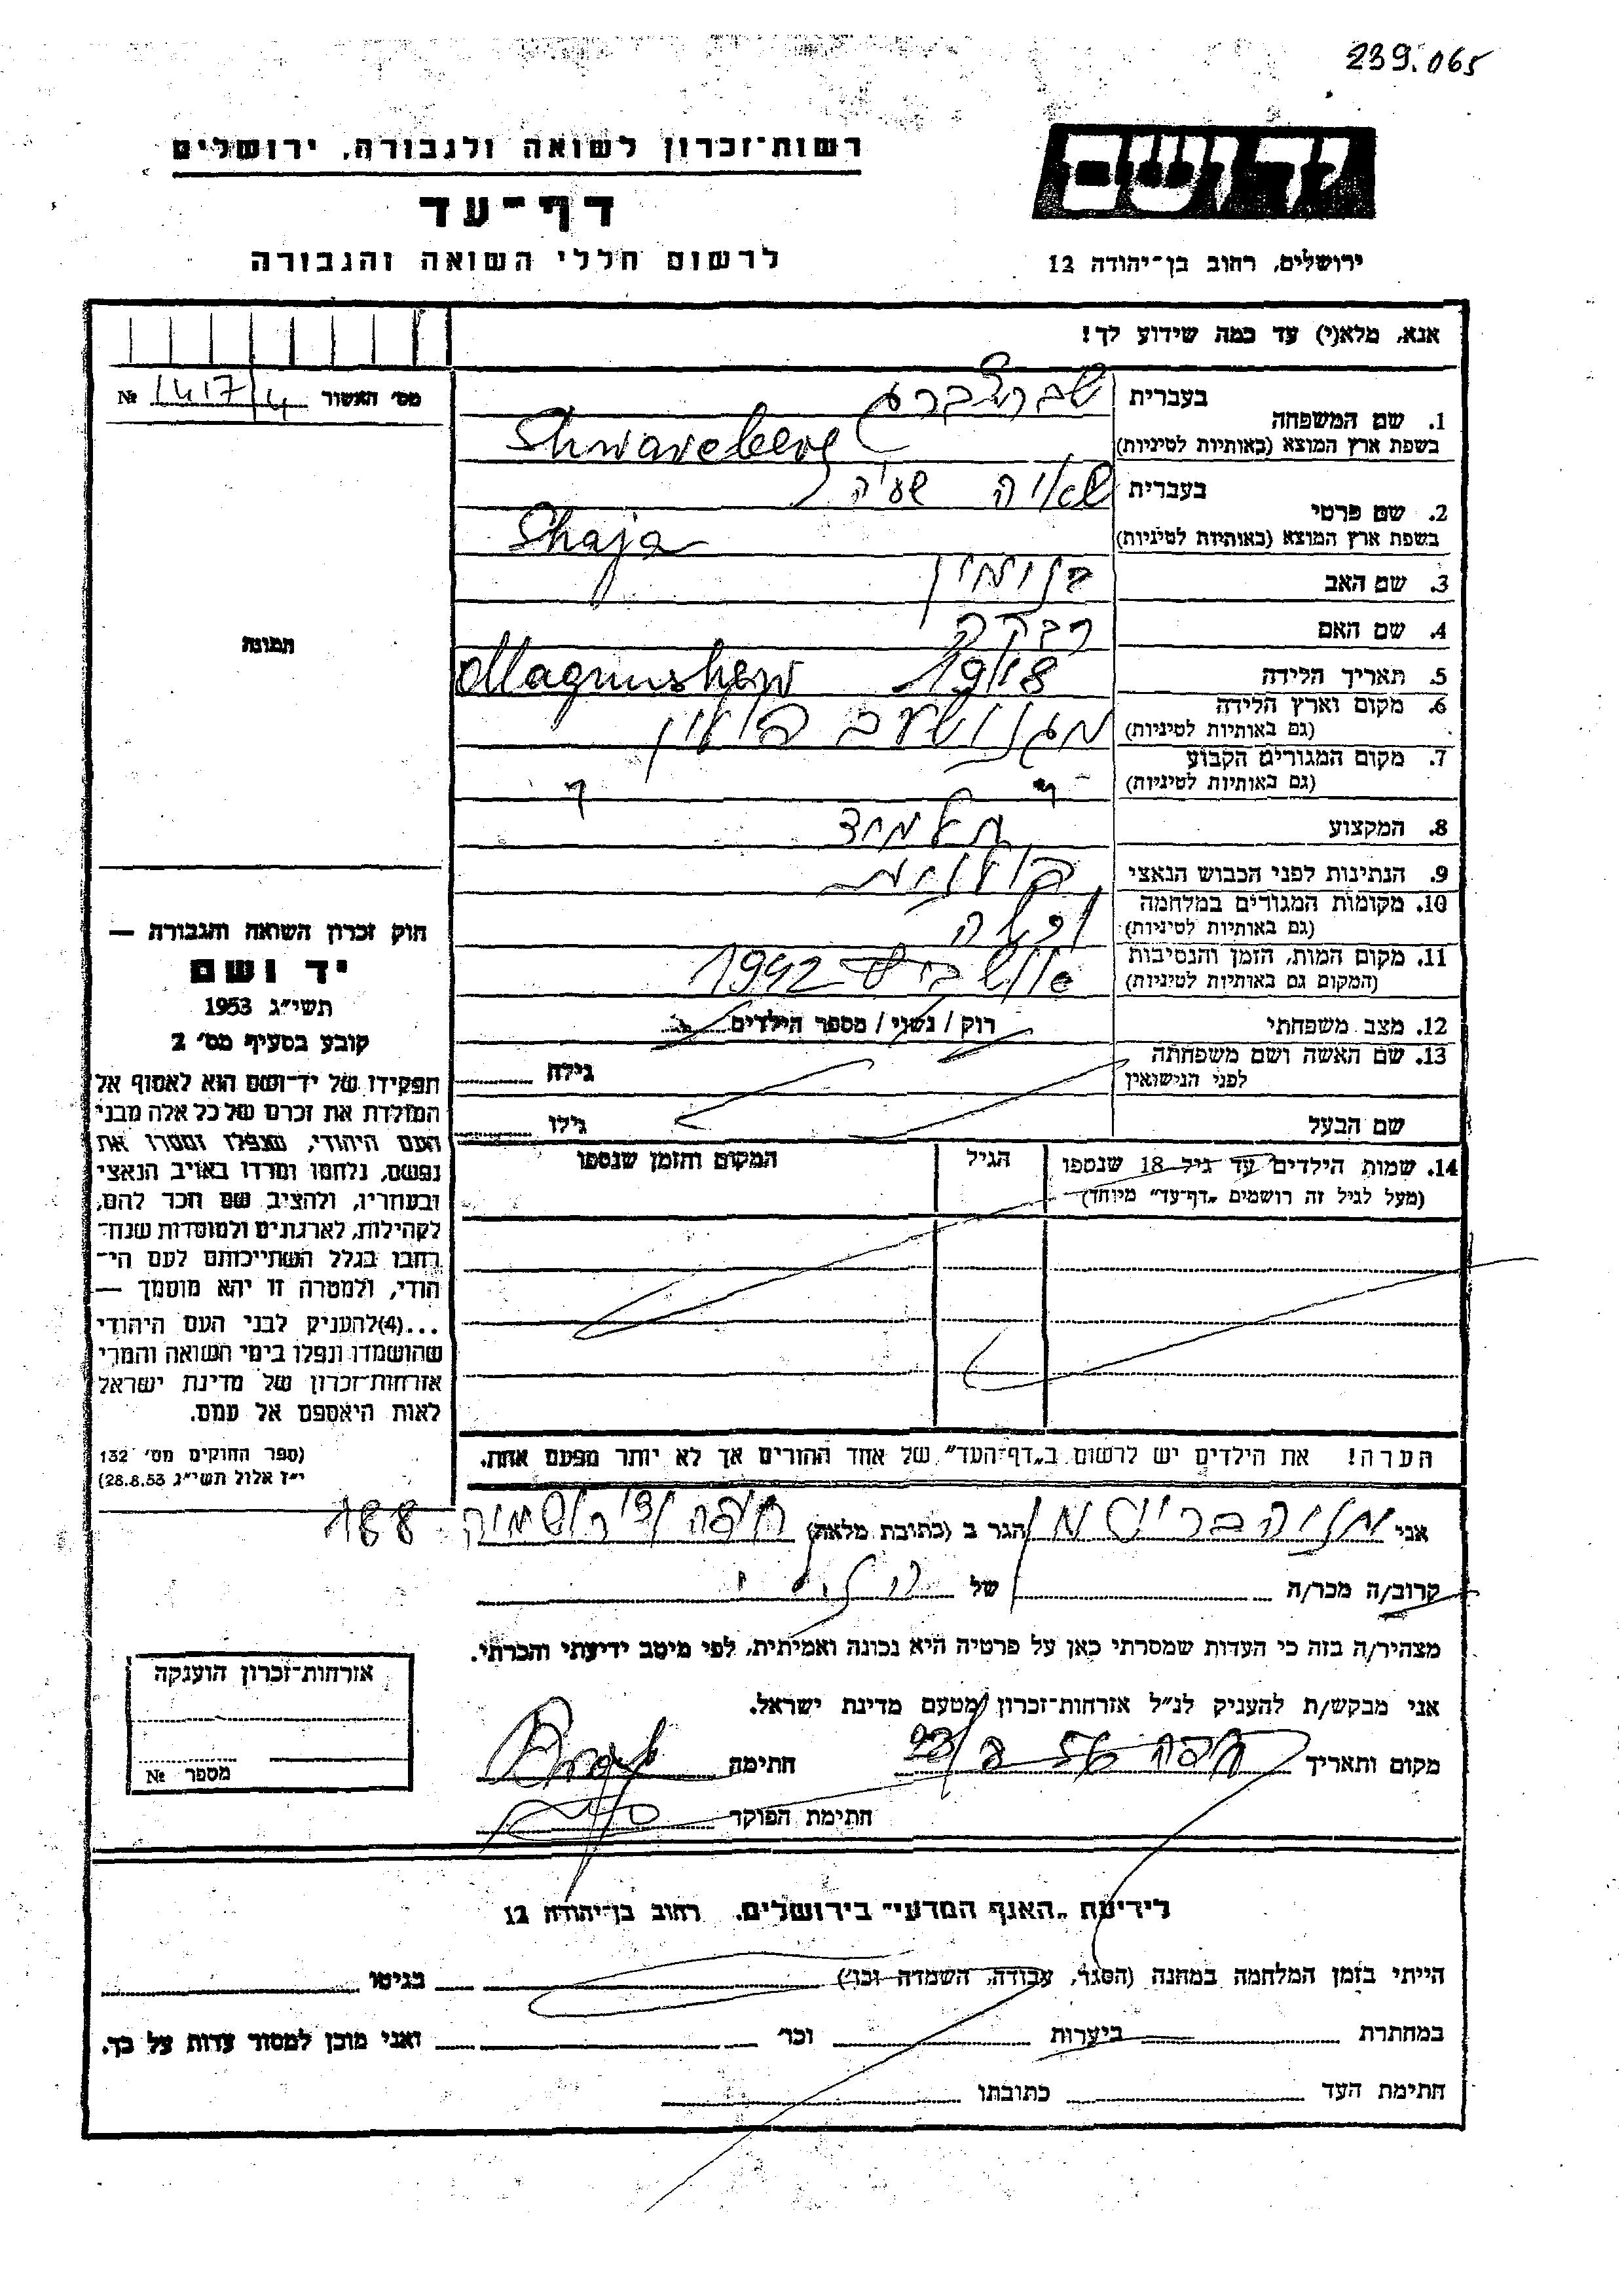 239.065
רשות־זכרון לשואה ולגבורה, ירושלים
יד ושם
דף־עד
לרשום חללי השואה והגבורה
ירושלים, רחוב בן־יהודה 12
אנא, מלא(י) עד כמה שידוע לך!
מס׳ האשור 1417/4 №
1. שם המשפחה
בעברית שברצברג
בשפת ארץ המוצא (באותיות לטיניות) Shwarcberg
2. שם פרטי
בעברית שאיה שעיה
בשפת ארץ המוצא (באותיות לטיניות) Shaja
3. שם האב בנימין
4. שם האם רבקה
5. תאריך הלידה 1918
6. מקום וארץ הלידה Magnushew
(גם באותיות לטיניות) מגנושעב פולין
7. מקום המגורים הקבוע
(גם באותיות לטיניות) " "
8. המקצוע
9. הנתינות לפני הכבוש הנאצי פולנית
10. מקומות המגורים במלחמה
(גם באותיות לטיניות)
11. מקום המות, הזמן והנסיבות
(המקום גם באותיות לטיניות) אושביץ 1942
12. מצב משפחתי רוק / נשוי / מספר הילדים
13. שם האשה ושם משפחתה
לפני הנישואין גילה
שם הבעל גילו
14. שמות הילדים עד גיל 18 שנספו הגיל המקום והזמן שנספו
(מעל לגיל זה רושמים „דף־עד” מיוחד)
הערה! את הילדים יש לרשום ב„דף־העד” של אחד ההורים אך לא יותר מפעם אחת.
תמונה
חוק זכרון השואה והגבורה —
יד ושם
תשי״ג 1953
קובע בסעיף מס׳ 2
תפקידו של יד־ושם הוא לאסוף אל
המולדת את זכרם של כל אלה מבני
העם היהודי, שנפלו ומסרו את
נפשם, נלחמו ומרדו באויב הנאצי
ובעוזריו, ולהציב שם וזכר להם,
לקהילות, לארגונים ולמוסדות שנח־
רבו בגלל השתייכותם לעם הי־
הודי, ולמטרה זו יהא מוסמך —
...(4)להעניק לבני העם היהודי
שהושמדו ונפלו בימי השואה והמרי
אזרחות־זכרון של מדינת ישראל
לאות היאספם אל עמם.
(ספר החוקים מס׳ 132
י״ז אלול תשי״ג 28.8.53)
אני מניה ברויטמן הגר ב (כתובת מלאה) חיפה 188
קרוב/ה מכר/ה של
מצהיר/ה בזה כי העדות שמסרתי כאן על פרטיה היא נכונה ואמיתית, לפי מיטב ידיעתי והכרתי.
אני מבקש/ת להעניק לנ״ל אזרחות־זכרון מטעם מדינת ישראל.
מקום ותאריך חיפה חתימה
חתימת הפוקד
אזרחות־זכרון הוענקה
מספר №
לידיעת „האגף המדעי” בירושלים, רחוב בן־יהודה 12
הייתי בזמן המלחמה במחנה (הסגר, עבודה, השמדה וכו׳) בגיטו
במחתרת ביערות וכו׳ ואני מוכן למסור עדות על כך.
חתימת העד כתובתו